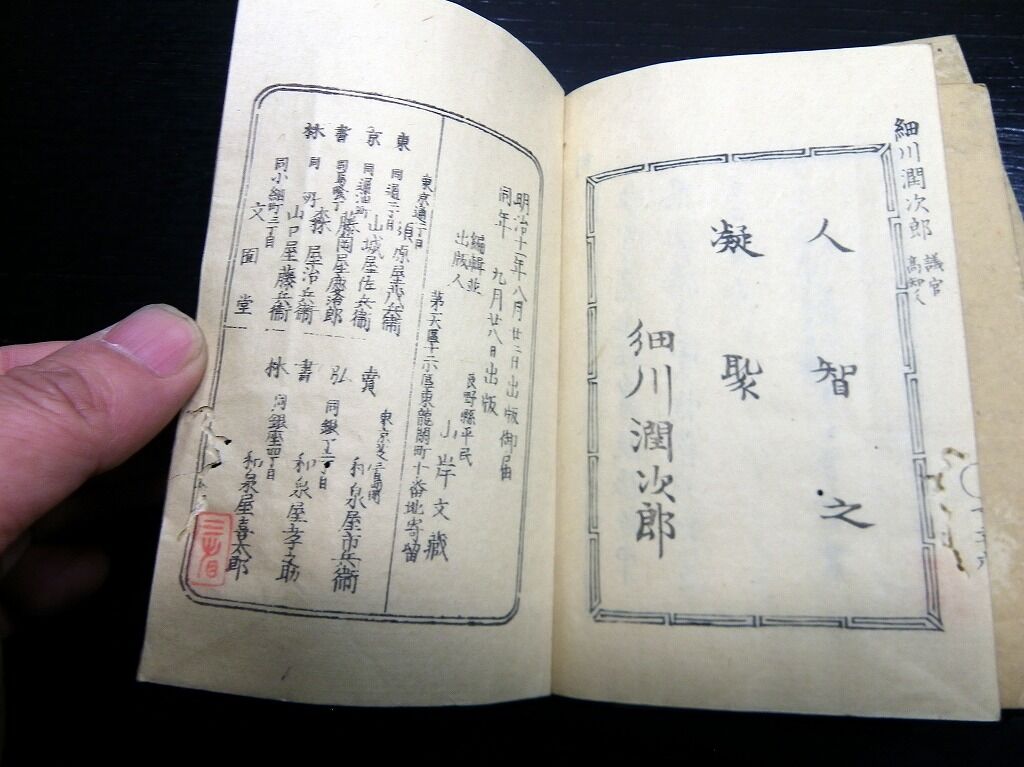 細川潤次郎 議官 高知人
人智之
凝聚
細川潤次郎
明治十一年八月廿二日出版御届
同年 九月廿八日出版
長野縣平民
編輯並
出版人 山岸文藏
第六大區十二小區東龍閑町十番地寄留
東京通二丁目
同通二丁目 須原屋茂兵衞
山城屋佐兵衞
藤岡屋慶治郎
森屋治兵衞
同小網町二丁目 山口屋藤兵衞
文園堂
東京書林
和泉屋市兵衞
同銀丁二丁目 和泉屋孝之助
同銀座四丁目 和泉屋喜太郎
弘賣書林